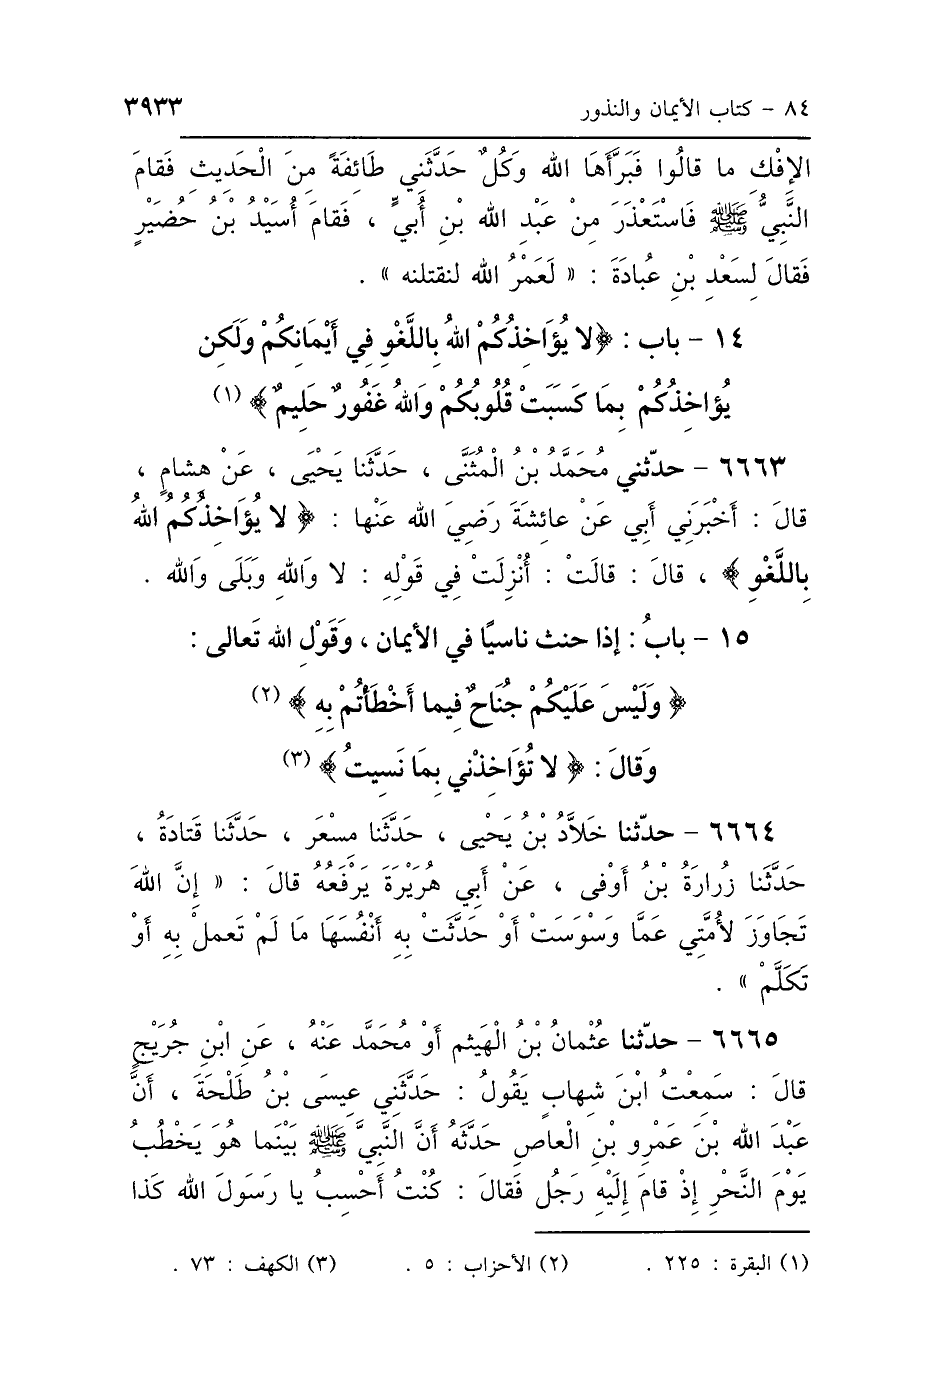 ٨٤ - كتاب الأيمان والنذور ٣٩٣٣
الإفْكِ ما قالُوا فَبَرَّأَهَا الله وَكُلٌ حَدَّثَنِي طَائِفَةً مِنَ الْحَدِيثِ فَقامَ
النَّبِيُّ ﷺ فَاسْتَعْذَرَ مِنْ عَبْدِ الله بْنِ أُبَيٍّ ، فَقامَ أُسَيْدُ بْنُ حُضَيْرٍ
فَقالَ لِسَعْدِ بْنِ عُبادَةَ : « لَعَمْرُ الله لنقتلنه » .
١٤ - باب : ﴿لا يُؤَاخِذُكُمْ اللهُ بِاللَّغْوِ فِي أَيْمَانِكُمْ وَلَكِن
يُؤَاخِذُكُمْ بِمَا كَسَبَتْ قُلُوبُكُمْ وَاللهُ غَفُورٌ حَلِيمٌ﴾ (١)
٦٦٦٣ - حدّثني مُحَمَّدُ بْنُ الْمُثَنَّى ، حَدَّثَنا يَحْيَى ، عَنْ هِشامٍ ،
قالَ : أَخْبَرَنِي أَبِي عَنْ عائِشَةَ رَضِيَ الله عَنْها : ﴿ لا يُؤَاخِذُكُمُ اللهُ
بِاللَّغْوِ ﴾ ، قالَ : قالَتْ : أُنْزِلَتْ فِي قَوْلِهِ : لا وَاللهِ وَبَلَى وَالله .
١٥ - بابُ : إذا حنث ناسيًا في الأيمان ، وَقَوْلِ الله تَعالى :
﴿ وَلَيْسَ عَلَيْكُمْ جُنَاحٌ فِيما أَخْطَأْتُمْ بِهِ ﴾ (٢)
وَقالَ : ﴿ لا تُؤَاخِذْنِي بِمَا نَسِيتُ ﴾ (٣)
٦٦٦٤ - حدّثنا خَلاَّدُ بْنُ يَحْيى ، حَدَّثَنا مِسْعَر ، حَدَّثَنا قَتادَةُ ،
حَدَّثَنا زُرارَةُ بْنُ أوْفى ، عَنْ أبِي هُرَيْرَةَ يَرْفَعُهُ قالَ : « إنَّ اللهَ
تَجَاوَزَ لأُمَّتِي عَمَّا وَسْوَسَت أوْ حَدَّثَتْ بِهِ أنْفُسَهَا مَا لَمْ تَعملْ بِهِ أوْ
تَكَلَّمْ » .
٦٦٦٥ - حدّثنا عُثْمانُ بْنُ الْهَيثمِ أوْ مُحَمَّد عَنْهُ ، عَنِ ابْنِ جُرَيْجٍ
قالَ : سَمِعْتُ ابْنَ شِهابٍ يَقُولُ : حَدَّثَنِي عِيسَى بْنُ طَلْحَةَ ، أنَّ
عَبْدَ الله بْنَ عَمْرِو بْنِ الْعاصِ حَدَّثَهُ أنَّ النَّبِيَّ ﷺ بَيْنَما هُوَ يَخْطُبُ
يَوْمَ النَّحْرِ إذْ قامَ إلَيْهِ رَجُل فَقالَ : كُنْتُ أحْسِبُ يا رَسَولَ الله كَذا
(١) البقرة : ٢٢٥ . (٢) الأحزاب : ٥ . (٣) الكهف : ٧٣ .